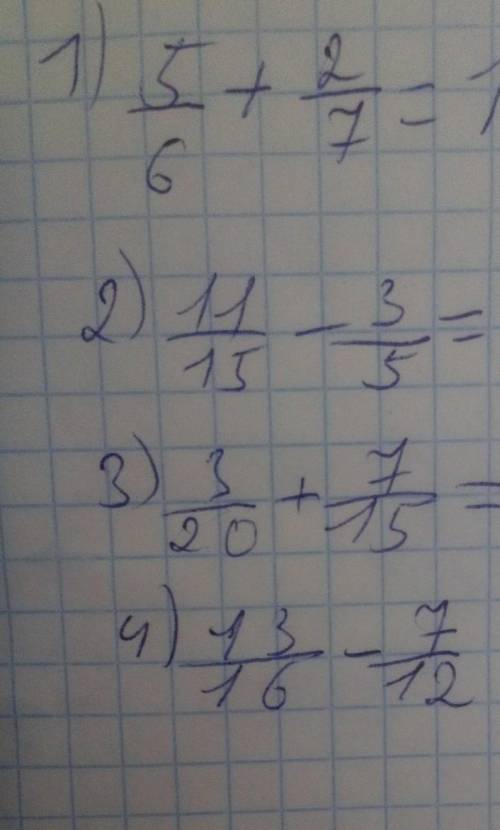 1) 5/6 + 2/7 = 1
2) 11/15 - 3/5 =
3) 3/20 + 7/15 =
4) 13/16 - 7/12